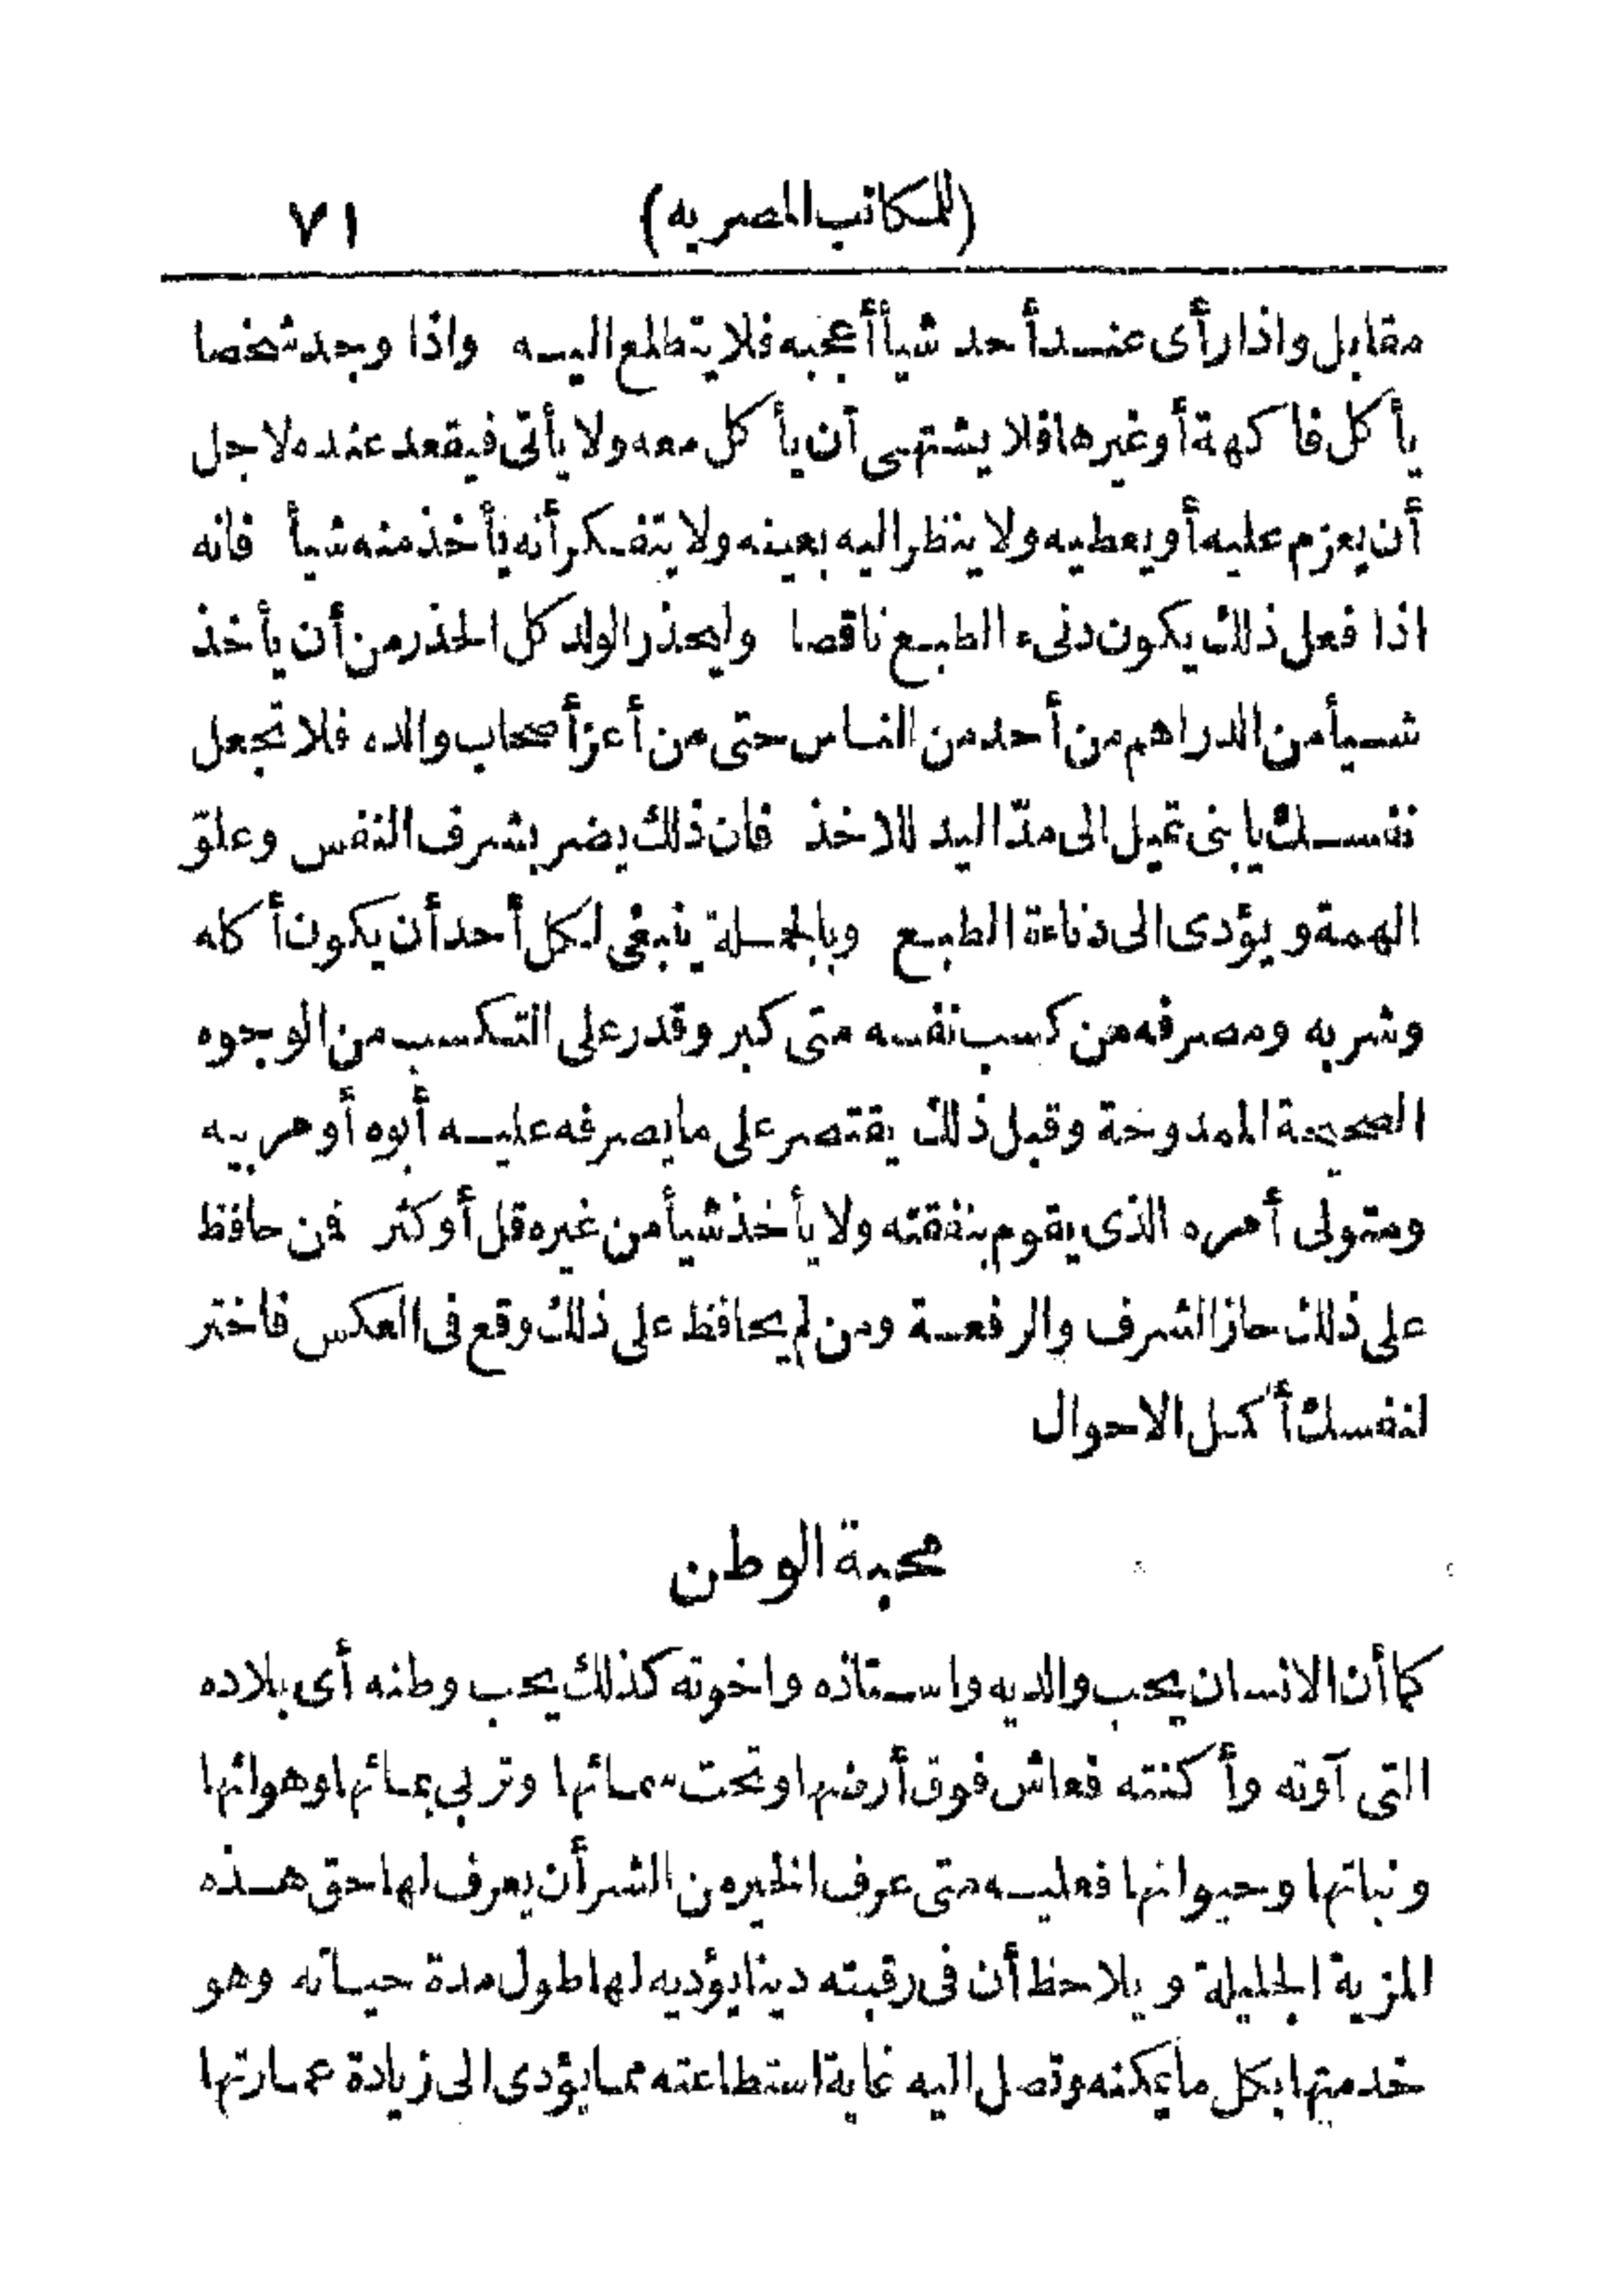 (للمكاتب المصريه) ٧١
مقابل واذا رأى عند أحد شيأ أعجبه فلا يتطلع اليه واذا وجد شخصا
يأكل فاكهة أو غيرها فلا يشتهى أن يأكل معه ولا يأتى فيقعد عنده لاجل
أن يعزم عليه أو يعطيه ولا ينظر اليه بعينه ولا يتفكر أنه يأخذ منه شيأ فانه
اذا فعل ذلك يكون دنىء الطبع ناقصا وليحذر الولد كل الحذر من أن يأخذ
شيأ من الدراهم من أحد من الناس حتى من أعز أصحاب والده فلا تجعل
نفسك يا بنى تميل الى مدّ اليد للاخذ فان ذلك يضر بشرف النفس وعلوّ
الهمة ويؤدى الى دناءة الطبع وبالجملة ينبغى لكل أحد أن يكون أكله
وشربه ومصرفه من كسب نفسه متى كبر وقدر على التكسب من الوجوه
الصحيحة الممدوحة وقبل ذلك يقتصر على ما يصرفه عليه أبوه أو مربيه
ومتولى أمره الذى يقوم بنفقته ولا يأخذ شيأ من غيره قل أو كثر فمن حافظ
على ذلك حاز الشرف والرفعة ومن لم يحافظ على ذلك وقع فى العكس فاختر
لنفسك أكمل الاحوال
محبة الوطن
كما أن الانسان يحب والديه واستاذه واخوته كذلك يحب وطنه أى بلاده
التى آوته وأكنته فعاش فوق أرضها وتحت سمائها وتربى بمائها وهوائها
ونباتها وحيوانها فعليه متى عرف الخير من الشر أن يعرف لها حق هذه
المزية الجليلة ويلاحظ أن فى رقبته دينا يؤديه لها طول مدة حياته وهو
خدمتها بكل ما يمكنه وتصل اليه غاية استطاعته مما يؤدى الى زيادة عمارتها